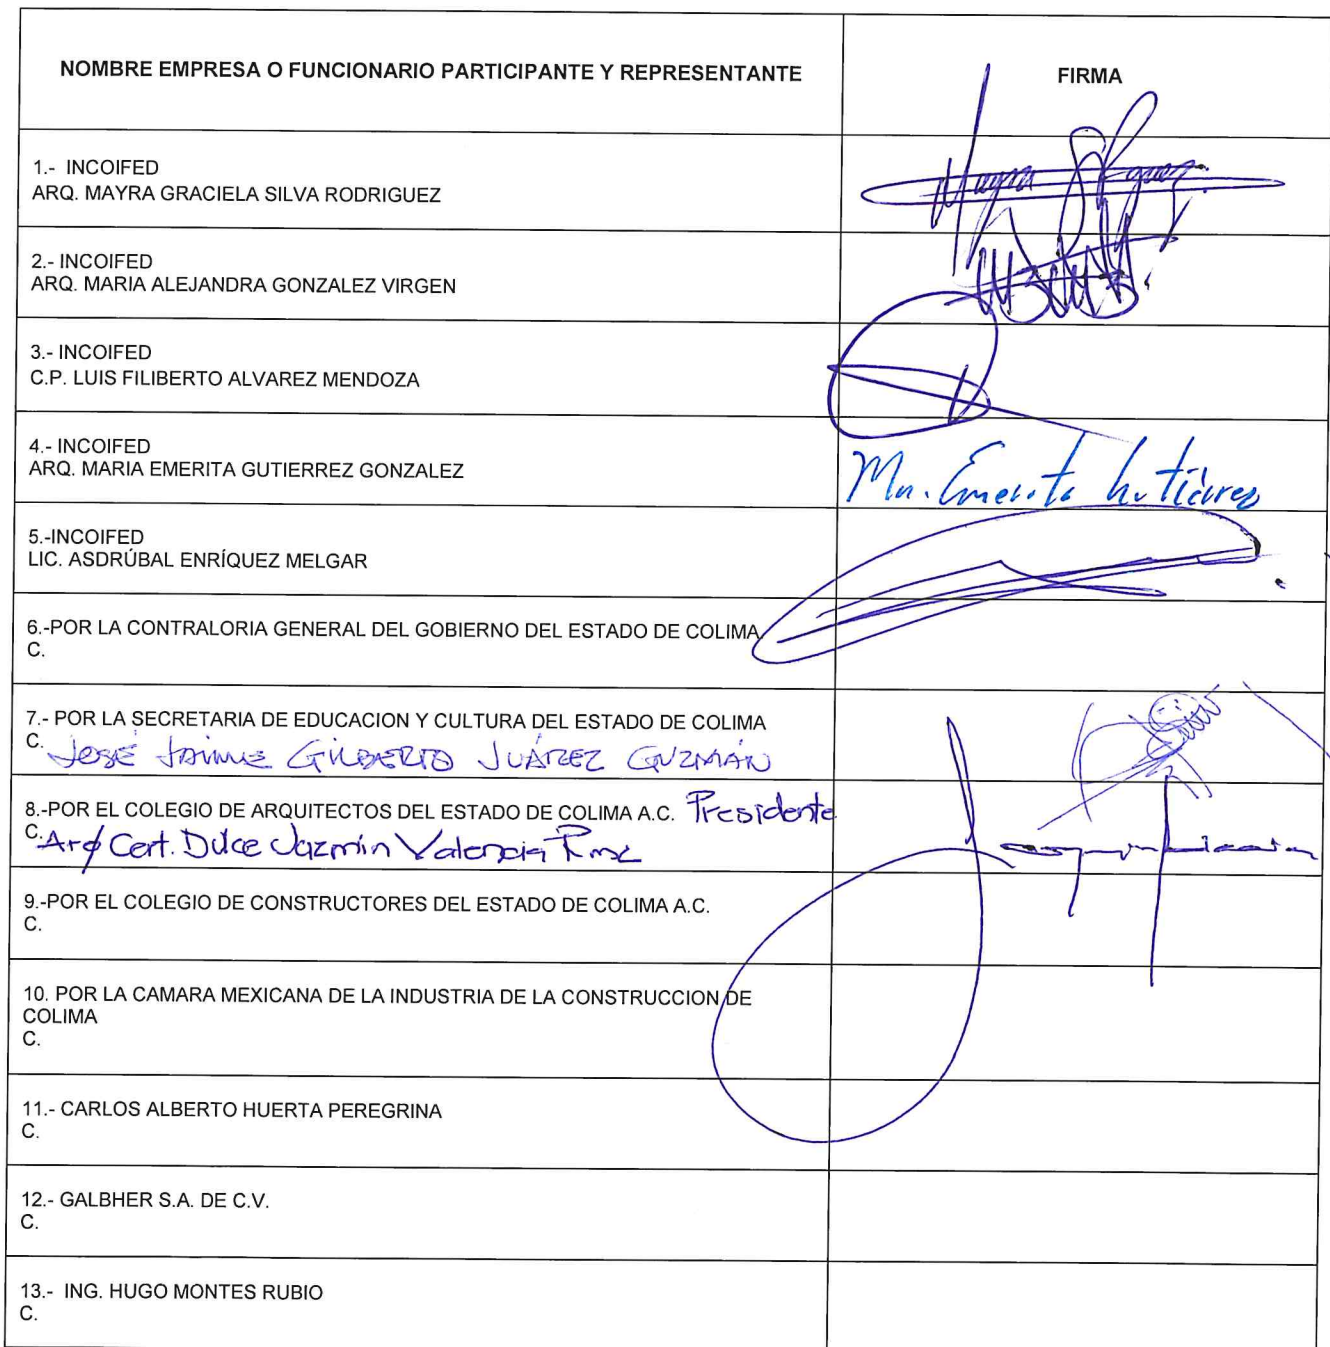 NOMBRE EMPRESA O FUNCIONARIO PARTICIPANTE Y REPRESENTANTE
FIRMA
1.- INCOIFED
ARQ. MAYRA GRACIELA SILVA RODRIGUEZ
Mayra
2.- INCOIFED
ARQ. MARIA ALEJANDRA GONZALEZ VIRGEN
3.- INCOIFED
C.P. LUIS FILIBERTO ALVAREZ MENDOZA
4.- INCOIFED
ARQ. MARIA EMERITA GUTIERREZ GONZALEZ
Ma. Emerita Gutiérrez
5.-INCOIFED
LIC. ASDRÚBAL ENRÍQUEZ MELGAR
6.-POR LA CONTRALORIA GENERAL DEL GOBIERNO DEL ESTADO DE COLIMA
C.
7.- POR LA SECRETARIA DE EDUCACION Y CULTURA DEL ESTADO DE COLIMA
C. JOSÉ JAIME GILBERTO JUÁREZ GUZMÁN
8.-POR EL COLEGIO DE ARQUITECTOS DEL ESTADO DE COLIMA A.C. Presidente
C. Arq Cert. Dulce Jazmín Valencia Rmz
9.-POR EL COLEGIO DE CONSTRUCTORES DEL ESTADO DE COLIMA A.C.
C.
10. POR LA CAMARA MEXICANA DE LA INDUSTRIA DE LA CONSTRUCCION DE
COLIMA
C.
11.- CARLOS ALBERTO HUERTA PEREGRINA
C.
12.- GALBHER S.A. DE C.V.
C.
13.- ING. HUGO MONTES RUBIO
C.